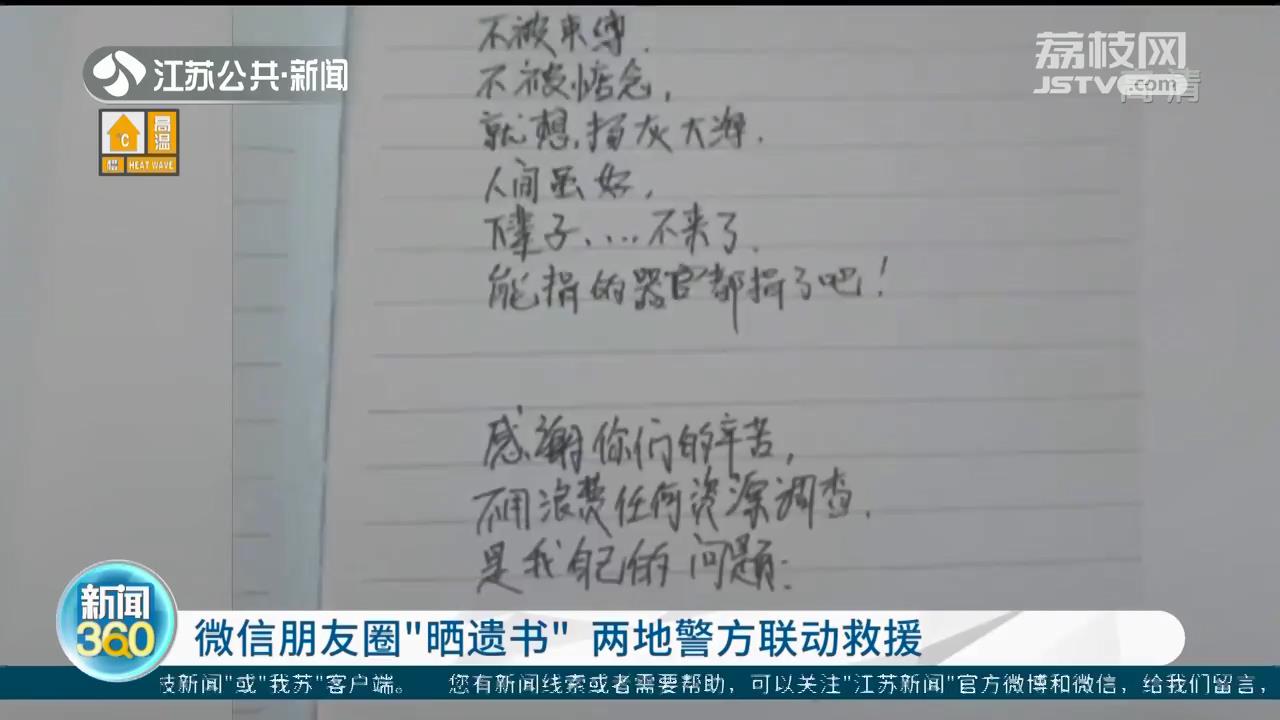 不被束缚.
不被惦念,
就想,扬灰大海.
人间虽好,
下辈子,...不来了.
能捐的器官都捐了吧!
感谢你们的辛苦,
不用浪费任何资源调查.
是我自己的问题:
江苏公共·新闻
荔枝网
JSTV.com
高清
高温
℃
橙
HEAT WAVE
新闻
360
微信朋友圈"晒遗书" 两地警方联动救援
技新闻"或"我苏"客户端。 您有新闻线索或者需要帮助,可以关注"江苏新闻"官方微博和微信,给我们留言,